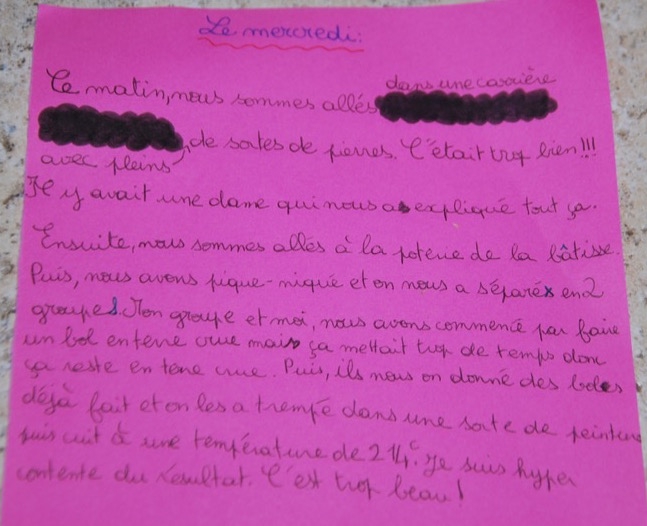 Le mercredi:
Ce matin, nous sommes allés dans une carrière
avec pleins de sortes de pierres. C'était trop bien!!!
Il y avait une dame qui nous a expliqué tout ça.
Ensuite, nous sommes allés à la poterie de la bâtisse.
Puis, nous avons pique-niqué et on nous a séparés en 2
groupes. Mon groupe et moi, nous avons commencé par faire
un bol en terre crue mais ça mettait trop de temps donc
ça reste en terre crue. Puis, ils nous on donné des bols
déjà fait et on les a trempé dans une sorte de peinture
puis cuit à une température de 214°c. Je suis hyper
contente du résultat. C'est trop beau!